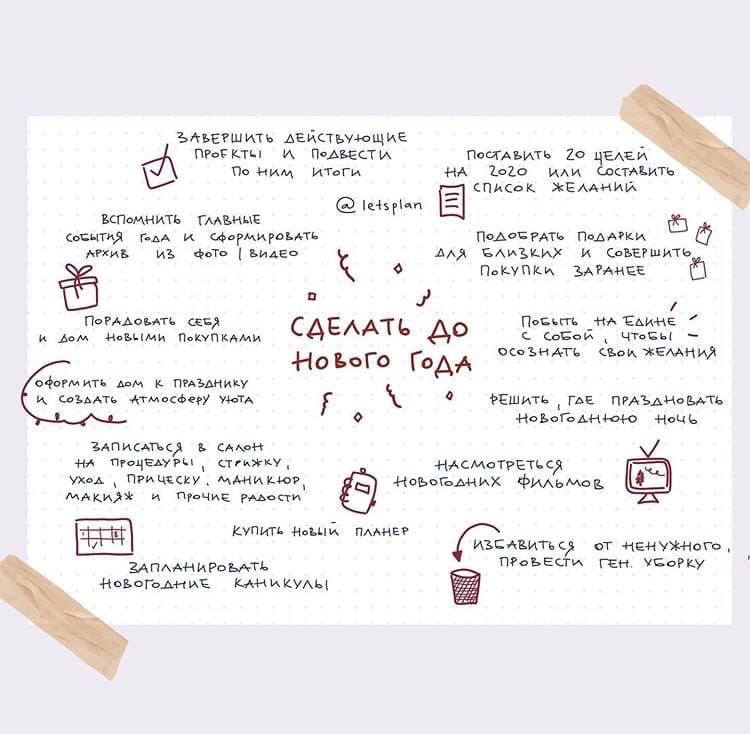 ЗАВЕРШИТЬ ДЕЙСТВУЮЩИЕ
ПРОЕКТЫ И ПОДВЕСТИ
ПО НИМ ИТОГИ
ПОСТАВИТЬ 20 ЦЕЛЕЙ
НА 2020 ИЛИ СОСТАВИТЬ
СПИСОК ЖЕЛАНИЙ
@letsplan
ВСПОМНИТЬ ГЛАВНЫЕ
СОБЫТИЯ ГОДА И СФОРМИРОВАТЬ
АРХИВ ИЗ ФОТО | ВИДЕО
ПОДОБРАТЬ ПОДАРКИ
ДЛЯ БЛИЗКИХ И СОВЕРШИТЬ
ПОКУПКИ ЗАРАНЕЕ
СДЕЛАТЬ ДО
НОВОГО ГОДА
ПОРАДОВАТЬ СЕБЯ
И ДОМ НОВЫМИ ПОКУПКАМИ
ПОБЫТЬ НА ЕДИНЕ
С СОБОЙ, ЧТОБЫ
ОСОЗНАТЬ СВОИ ЖЕЛАНИЯ
ОФОРМИТЬ ДОМ К ПРАЗДНИКУ
И СОЗДАТЬ АТМОСФЕРУ УЮТА
РЕШИТЬ, ГДЕ ПРАЗДНОВАТЬ
НОВОГОДНЮЮ НОЧЬ
ЗАПИСАТЬСЯ В САЛОН
НА ПРОЦЕДУРЫ, СТРИЖКУ,
УХОД, ПРИЧЕСКУ, МАНИКЮР,
МАКИЯЖ И ПРОЧИЕ РАДОСТИ
НАСМОТРЕТЬСЯ
НОВОГОДНИХ ФИЛЬМОВ
КУПИТЬ НОВЫЙ ПЛАНЕР
ИЗБАВИТЬСЯ ОТ НЕНУЖНОГО,
ПРОВЕСТИ ГЕН. УБОРКУ
ЗАПЛАНИРОВАТЬ
НОВОГОДНИЕ КАНИКУЛЫ